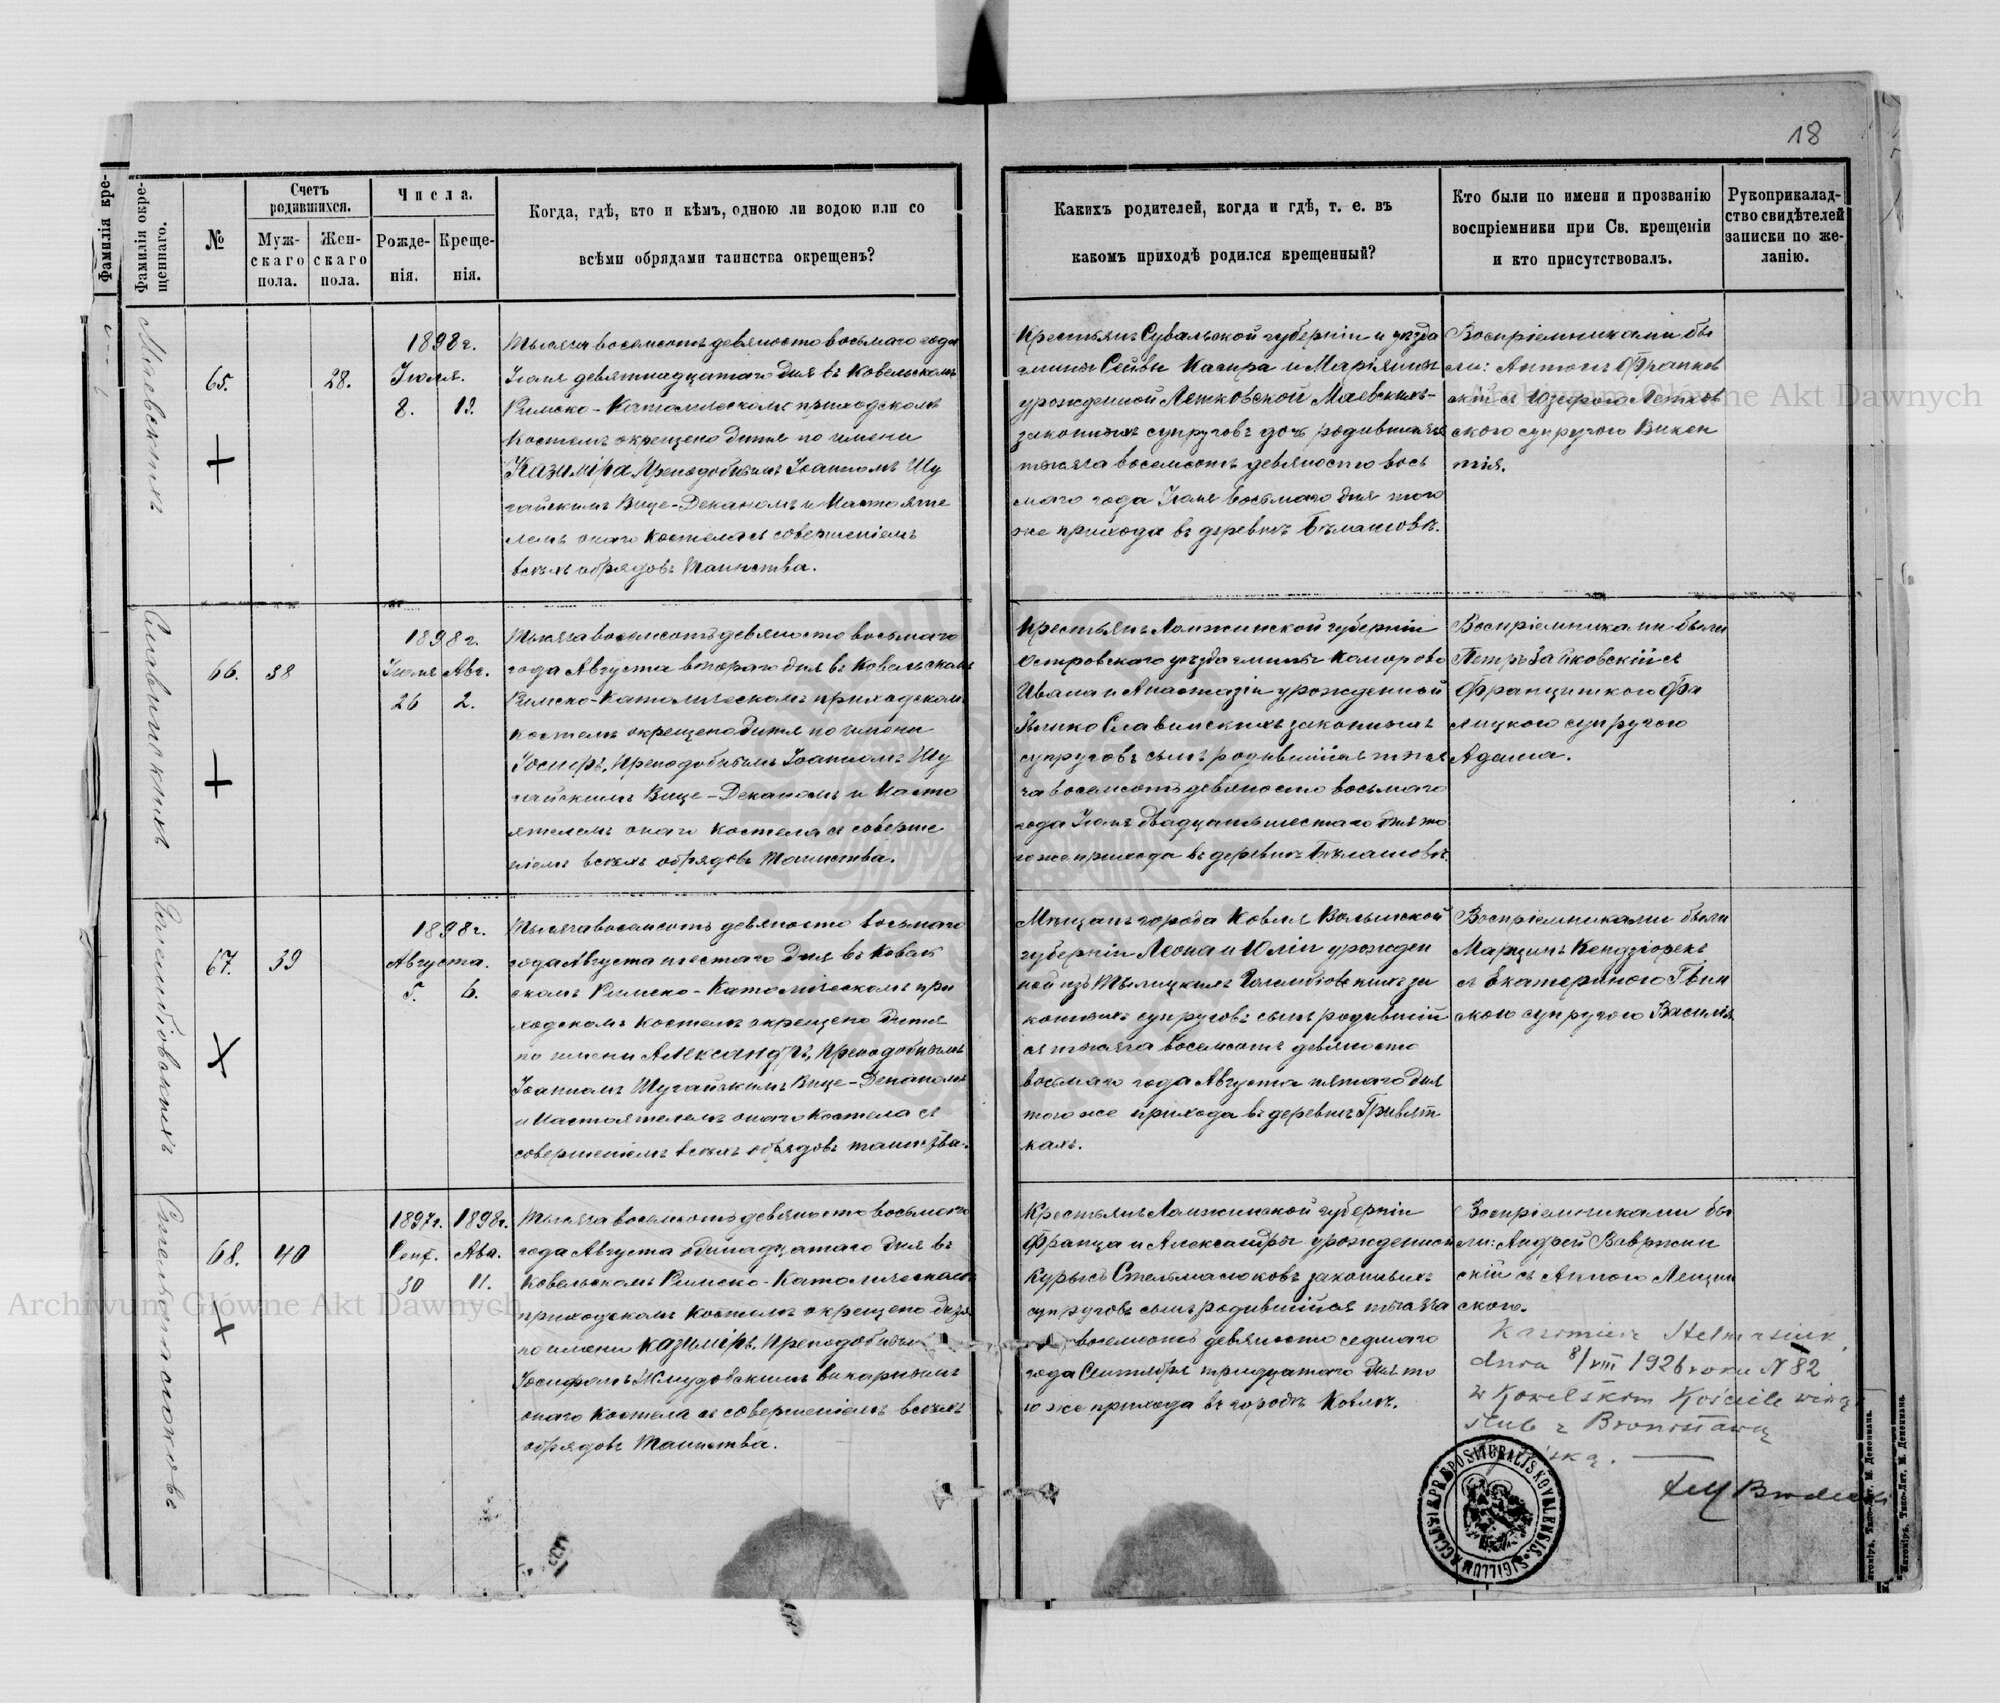 18
Фамилія кре-
Фамилія окре-
щеннаго.
№
Счетъ
родившихся.
Муж-
скаго
пола.
Жен-
скаго
пола.
Числа.
Рожде-
нія.
Креще-
нія.
Когда, гдѣ, кто и кѣмъ, одною ли водою или со
всѣми обрядами таинства окрещенъ?
Какихъ родителей, когда и гдѣ, т. е. въ
какомъ приходѣ родился крещенный?
Кто были по имени и прозванію
воспріемники при Св. крещеніи
и кто присутствовалъ.
Рукоприкалад-
ство свидѣтелей
записки по же-
ланію.
Маевскихъ
65.
28.
1898 г.
Іюля.
8. 19.
Тысяча восемсотъ девяносто восьмаго года
Іюля девятнадцатаго дня въ Ковельскомъ
Римско-Католическомъ приходскомъ
Костелѣ окрещено дитя по имени
Казиміра Преподобнымъ Іоанномъ Шу
гайскимъ Вице-Деканомъ и Настояте
лемъ онаго Костела съ совершеніемъ
всѣхъ обрядовъ Таинства.
Крестьянъ Сувалской губерніи и уѣзда
гмины Сейвы Каспра и Маріянны
урожденной Летковской Маевскихъ-
законныхъ супруговъ дочь родившаяся
тысяча восемсотъ девяносто вось
маго года Іюля восьмаго дня того
же прихода въ деревнѣ Бѣлашовѣ.
Воспріемниками бы
ли: Антонъ Франков
скій съ Юзефою Летков
скою супругою Викен
тія.
Славинскихъ
66.
38
1898 г.
Іюля Авг.
26 2.
Тысяча восемсотъ девяносто восьмаго
года Августа втораго дня въ Ковельскомъ
Римско-Католическомъ приходскомъ
костелѣ окрещено дитя по имени
Іосифъ, Преподобнымъ Іоанномъ Шу
гайскимъ Вице-Деканомъ и Насто
ятелемъ онаго костела съ соверше
ніемъ всѣхъ обрядовъ Таинства.
Крестьянъ Ломжинской губерніи
Островскаго уѣзда гмины Коморово
Ивана и Анастазіи урожденной
Славинскихъ законныхъ
супруговъ сынъ родившійся тыся
ча восемсотъ девяносто восьмаго
года Іюля двадцать шестаго дня то
го же прихода въ деревнѣ Бѣлашовѣ.
Воспріемниками были
Петръ Зайковскій съ
Францишкою
супругою
Адама.
Голембіовскихъ
67.
39
1898 г.
Августа.
5. 6.
Тысяча восемсотъ девяносто восьмаго
года Августа шестаго дня въ Ковель
скомъ Римско-Католическомъ при
ходскомъ костелѣ окрещено дитя
по имени Александръ, Преподобнымъ
Іоанномъ Шугайскимъ Вице-Деканомъ
и Настоятелемъ онаго Костела съ
совершеніемъ всѣхъ обрядовъ таинства.
Мѣщанъ города Ковля Волынской
губерніи Леона и Юліи урожден
ной изъ Голембіовскихъ за
конныхъ супруговъ сынъ родившій
ся тысяча восемсотъ девяносто
восьмаго года Августа пятаго дня
того же прихода въ деревнѣ Гривят
кахъ.
Воспріемниками были
Марцинъ Кендзіорекъ
съ Екатериною
супругою Василія.
Стельмасюковъ
68.
40
1897 г. 1898 г.
Сент. Авг.
30 11.
Тысяча восемсотъ девяносто восьмаго
года Августа одинадцатаго дня въ
Ковельскомъ Римско-Католическомъ
приходскомъ костелѣ окрещено дитя
по имени Казиміръ, Преподобнымъ
Іосифомъ Жмудовскимъ викаріемъ
онаго костела съ совершеніемъ всѣхъ
обрядовъ Таинства.
Крестьянъ Ломжинской губерніи
Франца и Александры урожденной
Курысъ Стельмасюковъ законныхъ
супруговъ сынъ родившійся тысяча
восемсотъ девяносто седмаго
года Сентября тридцатаго дня то
го же прихода въ городѣ Ковлѣ.
Воспріемниками бы
ли: Андрей Вавржин
скій съ Анною Лещин
скою.
Kazimierz Stelmasiuk
dnia 8/VIII 1926 roku N 82
w Kowelskim Kościele wziął
ślub z Bronisławą
SIGILLUM ECCLESIAE PRAEPOSITURALIS KOVELENSIS
Archiwum Główne Akt Dawnych
Archiwum Główne Akt Dawnych